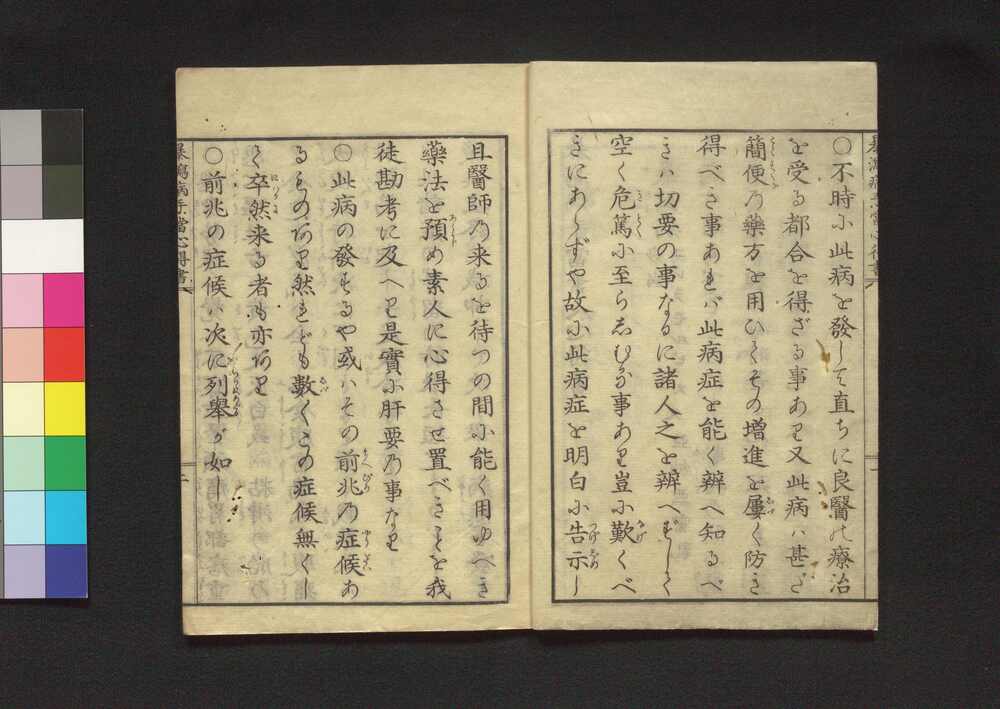 ○不時に此病を發して直ちに良醫の療治
を受る都合を得ざる事あり又此病ハ甚ざ
簡便の藥方を用ひてその増進を屢〻防ぎ
得べき事あれバ此病症を能く辨へ知るべ
きハ切要の事なるに諸人之を辨へずして
空く危篤に至らしむる事あり豈に歎くべ
きにあらずや故に此病症を明白に告示し
且醫師の来るを待つの間に能く用ゆべき
藥法を預め素人に心得させ置べきことを我
徒勘考に及へり是實に肝要の事なり
○此病の發するや或ハその前兆の症候あ
るものあり然れども數〻この症候無く
て卒然来る者も亦あり
○前兆の症候ハ次に列舉するか如し
暴瀉病手當心得書